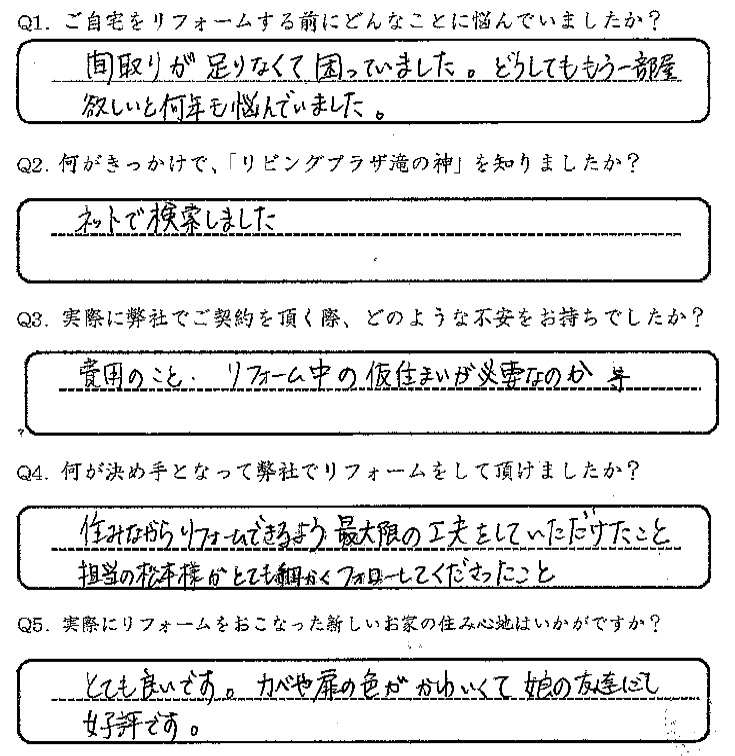 Q1. ご自宅をリフォームする前にどんなことに悩んでいましたか？
間取りが足りなくて困っていました。どうしてももう一部屋
欲しいと何年も悩んでいました。
Q2. 何がきっかけで、「リビングプラザ滝の神」を知りましたか？
ネットで検索しました
Q3. 実際に弊社でご契約を頂く際、どのような不安をお持ちでしたか？
費用のこと. リフォーム中の仮住まいが必要なのか 等
Q4. 何が決め手となって弊社でリフォームをして頂けましたか？
住みながらリフォームできるよう最大限の工夫をしていただけたこと
担当の松本様がとても細かくフォローしてくださったこと
Q5. 実際にリフォームをおこなった新しいお家の住み心地はいかがですか？
とても良いです。カベや扉の色がかわいくて娘の友達にも
好評です。